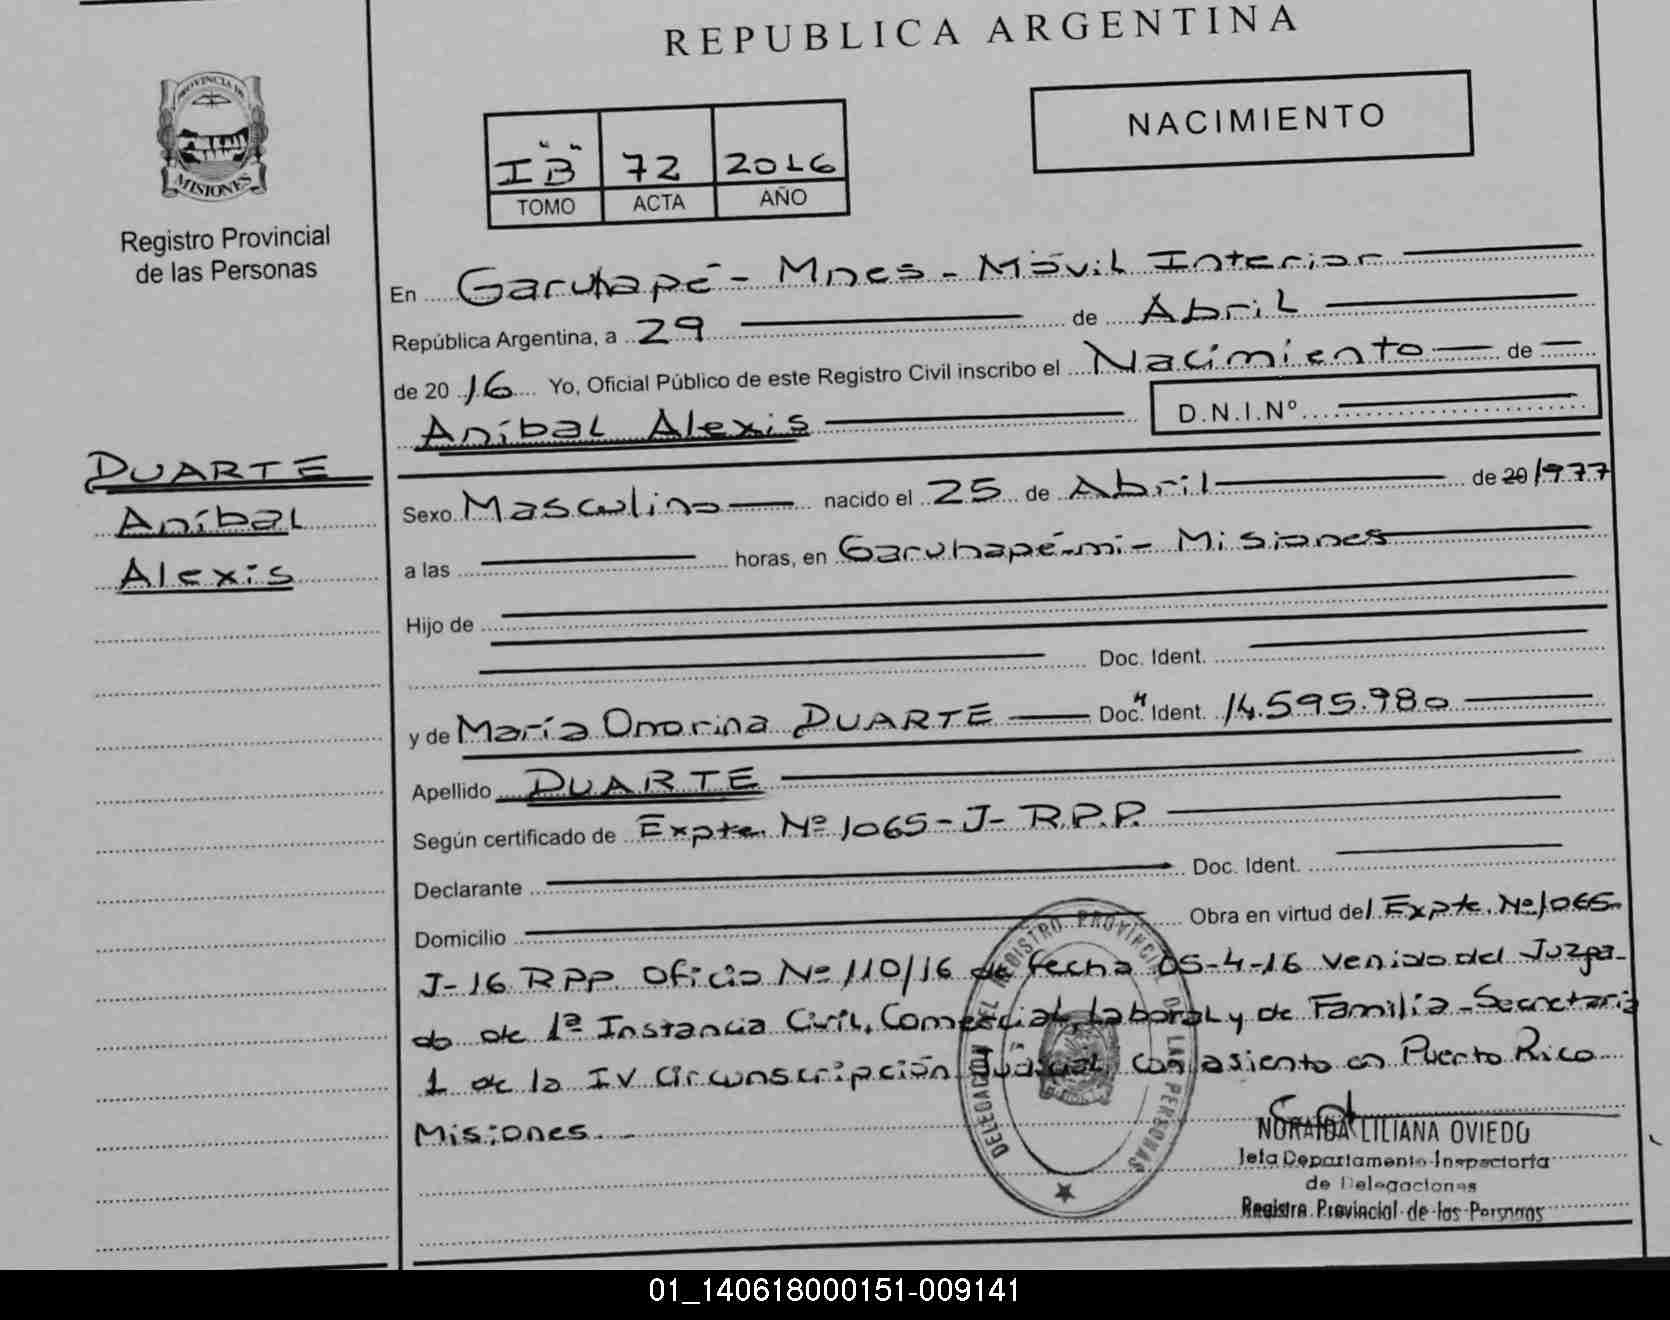 REPUBLICA ARGENTINA
PROVINCIA DE
MISIONES
Registro Provincial
de las Personas
NACIMIENTO
I "B" 72 2016
TOMO ACTA AÑO
En Garuhapé - Mnes - Móvil Interior
República Argentina, a 29 de Abril
de 2016 Yo, Oficial Público de este Registro Civil inscribo el Nacimiento de
Aníbal Alexis D.N.I.Nº
DUARTE
Aníbal
Alexis
Sexo Masculino nacido el 25 de Abril de 20 1977
a las horas, en Garuhapé-mi - Misiones
Hijo de
Doc. Ident.
y de María Onorina DUARTE Doc. Ident. 14.595.980
Apellido DUARTE
Según certificado de Expte. Nº 1065 - J - R.P.P.
Declarante Doc. Ident.
Domicilio Obra en virtud del Expte. Nº 1065-
J-16 RPP. Oficio Nº 110/16 de fecha 05-4-16 venido del Juzga-
do de 1ª Instancia Civil, Comercial, Laboral y de Familia - Secretaria
1 de la IV Circunscripción Judicial, con asiento en Puerto Rico
Misiones. -
DELEGACION DEL REGISTRO PROVINCIAL DE LAS PERSONAS
NORAIDA LILIANA OVIEDO
Jefa Departamento Inspectoria
de Delegaciones
Registro Provincial de las Personas
01_140618000151-009141